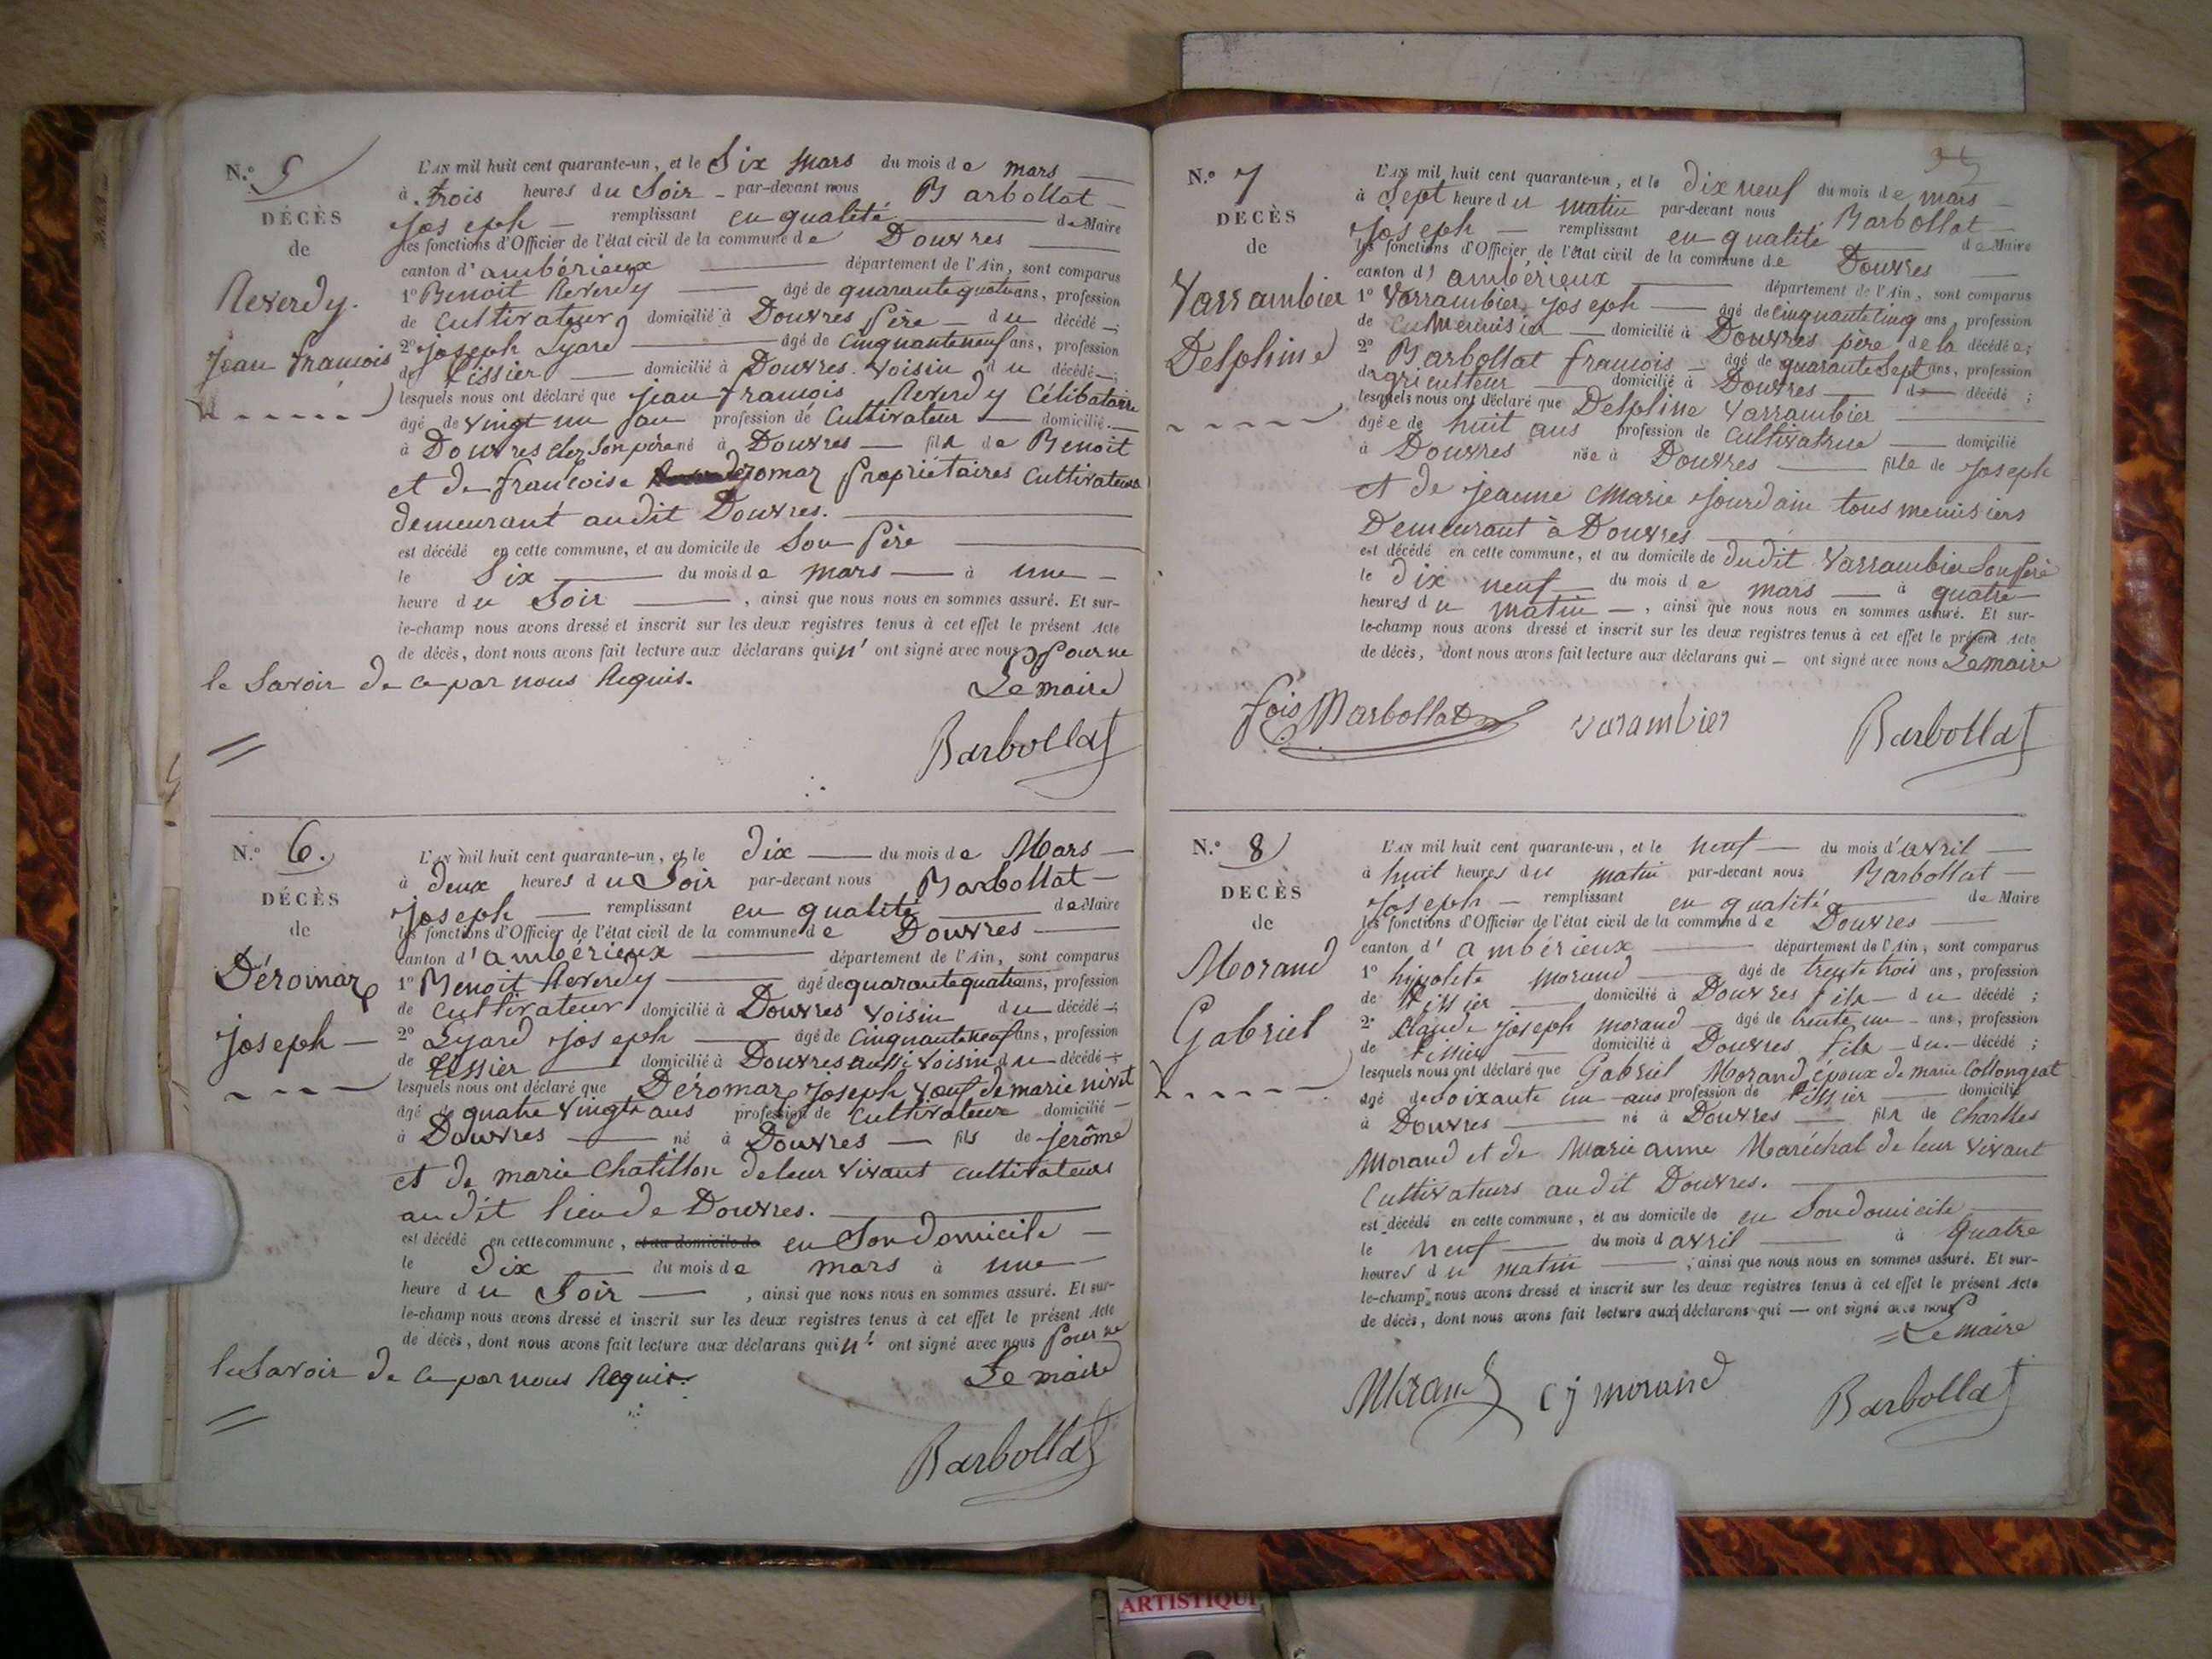 N.º 5
DÉCÈS
de
Reverdy.
jean francois
L'AN mil huit cent quarante-un, et le Six mars du mois de mars
à trois heures du Soir par-devant nous Barbollat
joseph remplissant en qualité de Maire
les fonctions d'Officier de l'état civil de la commune de Douvres
canton d'ambérieux département de l'Ain, sont comparus
1º Benoit Reverdy âgé de quarante quatre ans, profession
de Cultivateur domicilié à Douvres père du décédé ;
2º joseph Lyard âgé de Cinquante neuf ans, profession
de tissier domicilié à Douvres voisin du décédé ;
lesquels nous ont déclaré que jean francois Reverdy Célibataire
âgé de vingt un an profession de Cultivateur domicilié
à Douvres chez Son père né à Douvres fils de Benoit
et de francoise deromaz propriétaires Cultivateurs
demeurant audit Douvres.
est décédé en cette commune, et au domicile de Son père
le Six du mois de mars à une
heure du Soir, ainsi que nous nous en sommes assuré. Et sur-
le-champ nous avons dressé et inscrit sur les deux registres tenus à cet effet le présent Acte
de décès, dont nous avons fait lecture aux déclarans qui n'ont signé avec nous pour ne
le Savoir de ce par nous Requis.
Le maire
Barbollat
N.º 6.
DÉCÈS
de
Déromaz
joseph
L'AN mil huit cent quarante-un, et le dix du mois de Mars
à deux heures du Soir par-devant nous Barbollat
joseph remplissant en qualité de Maire
les fonctions d'Officier de l'état civil de la commune de Douvres
canton d'ambérieux département de l'Ain, sont comparus
1º Benoit Reverdy âgé de quarante quatre ans, profession
de Cultivateur domicilié à Douvres voisin du décédé ;
2º Lyard joseph âgé de Cinquante neuf ans, profession
de tissier domicilié à Douvres aussi voisin du décédé ;
lesquels nous ont déclaré que Déromaz joseph veuf de marie nivet
âgé de quatre vingts ans profession de Cultivateur domicilié
à Douvres né à Douvres fils de jerôme
et de marie Chatillon de leur vivant cultivateurs
audit lieu de Douvres.
est décédé en cette commune, et au domicile de en Son domicile
le dix du mois de mars à une
heure du Soir, ainsi que nous nous en sommes assuré. Et sur-
le-champ nous avons dressé et inscrit sur les deux registres tenus à cet effet le présent Acte
de décès, dont nous avons fait lecture aux déclarans qui n'ont signé avec nous pour ne
le Savoir de ce par nous Requis.
Le maire
Barbollat
N.º 7
DÉCÈS
de
Varrambier
Delphine
L'AN mil huit cent quarante-un, et le dix neuf du mois de mars
à Sept heure du matin par-devant nous Barbollat
joseph remplissant en qualité de Maire
les fonctions d'Officier de l'état civil de la commune de Douvres
canton d'ambérieux département de l'Ain, sont comparus
1º Varrambier joseph âgé de cinquante cinq ans, profession
de menuisier domicilié à Douvres père de la décédée ;
2º Barbollat francois âgé de quarante Sept ans, profession
d'agriculteur domicilié à Douvres d décédé ;
lesquels nous ont déclaré que Delphine Varrambier
âgée de huit ans profession de cultivatrice domicilié
à Douvres née à Douvres fille de joseph
et de jeanne Marie jourdain tous menuisiers
Demeurant à Douvres
est décédé en cette commune, et au domicile de dudit Varrambier Son père
le dix neuf du mois de mars à quatre
heures du matin, ainsi que nous nous en sommes assuré. Et sur-
le-champ nous avons dressé et inscrit sur les deux registres tenus à cet effet le présent Acte
de décès, dont nous avons fait lecture aux déclarans qui ont signé avec nous Le maire
fois Barbollat varambier Barbollat
N.º 8
DÉCÈS
de
Morand
Gabriel
L'AN mil huit cent quarante-un, et le neuf du mois d'avril
à huit heures du matin par-devant nous Barbollat
joseph remplissant en qualité de Maire
les fonctions d'Officier de l'état civil de la commune de Douvres
canton d'ambérieux département de l'Ain, sont comparus
1º hipolite morand âgé de trente trois ans, profession
de tissier domicilié à Douvres fils du décédé ;
2º Claude joseph morand âgé de trente un ans, profession
de tissier domicilié à Douvres fils du décédé ;
lesquels nous ont déclaré que Gabriel Morand, époux de marie Collongeat
âgé de Soixante un ans profession de tissier domicilié
à Douvres né à Douvres fils de Charles
Morand et de Marie anne Maréchal de leur vivant
Cultivateurs audit Douvres.
est décédé en cette commune, et au domicile de en Son domicile
le neuf du mois d'avril à quatre
heures du matin, ainsi que nous nous en sommes assuré. Et sur-
le-champ nous avons dressé et inscrit sur les deux registres tenus à cet effet le présent Acte
de décès, dont nous avons fait lecture aux déclarans qui ont signé avec nous
Le maire
Morand Cj morand Barbollat
ARTISTIQUE